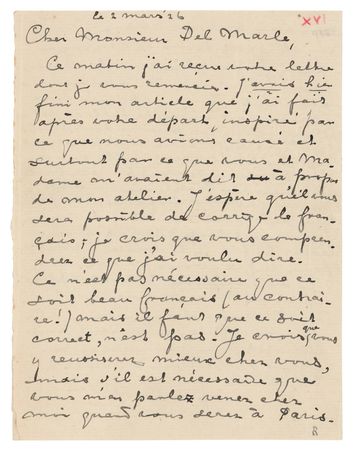 le 2 mars '26
XVI
Cher Monsieur Del Marle,
Ce matin j'ai reçu votre lettre
dont je vous remercie. J'avais hier
fini mon article que j'ai fait
après votre départ, inspiré par
ce que nous avions causé et
surtout par ce que vous et Ma-
dame m'avaient dit à propos
de mon atelier. J'espère qu'il vous
sera possible de corriger le fran-
çais; je crois que vous compren-
drez ce que j'ai voulu dire.
Ce n'est pas nécessaire que ce
soit beau français (au contrai-
re!) mais il faut que ce soit
correct, n'est pas. Je crois que vous
y reussirez mieux chez vous,
mais s'il est nécessaire que
vous m'en parlez venez chez
moi quand vous serez à Paris.